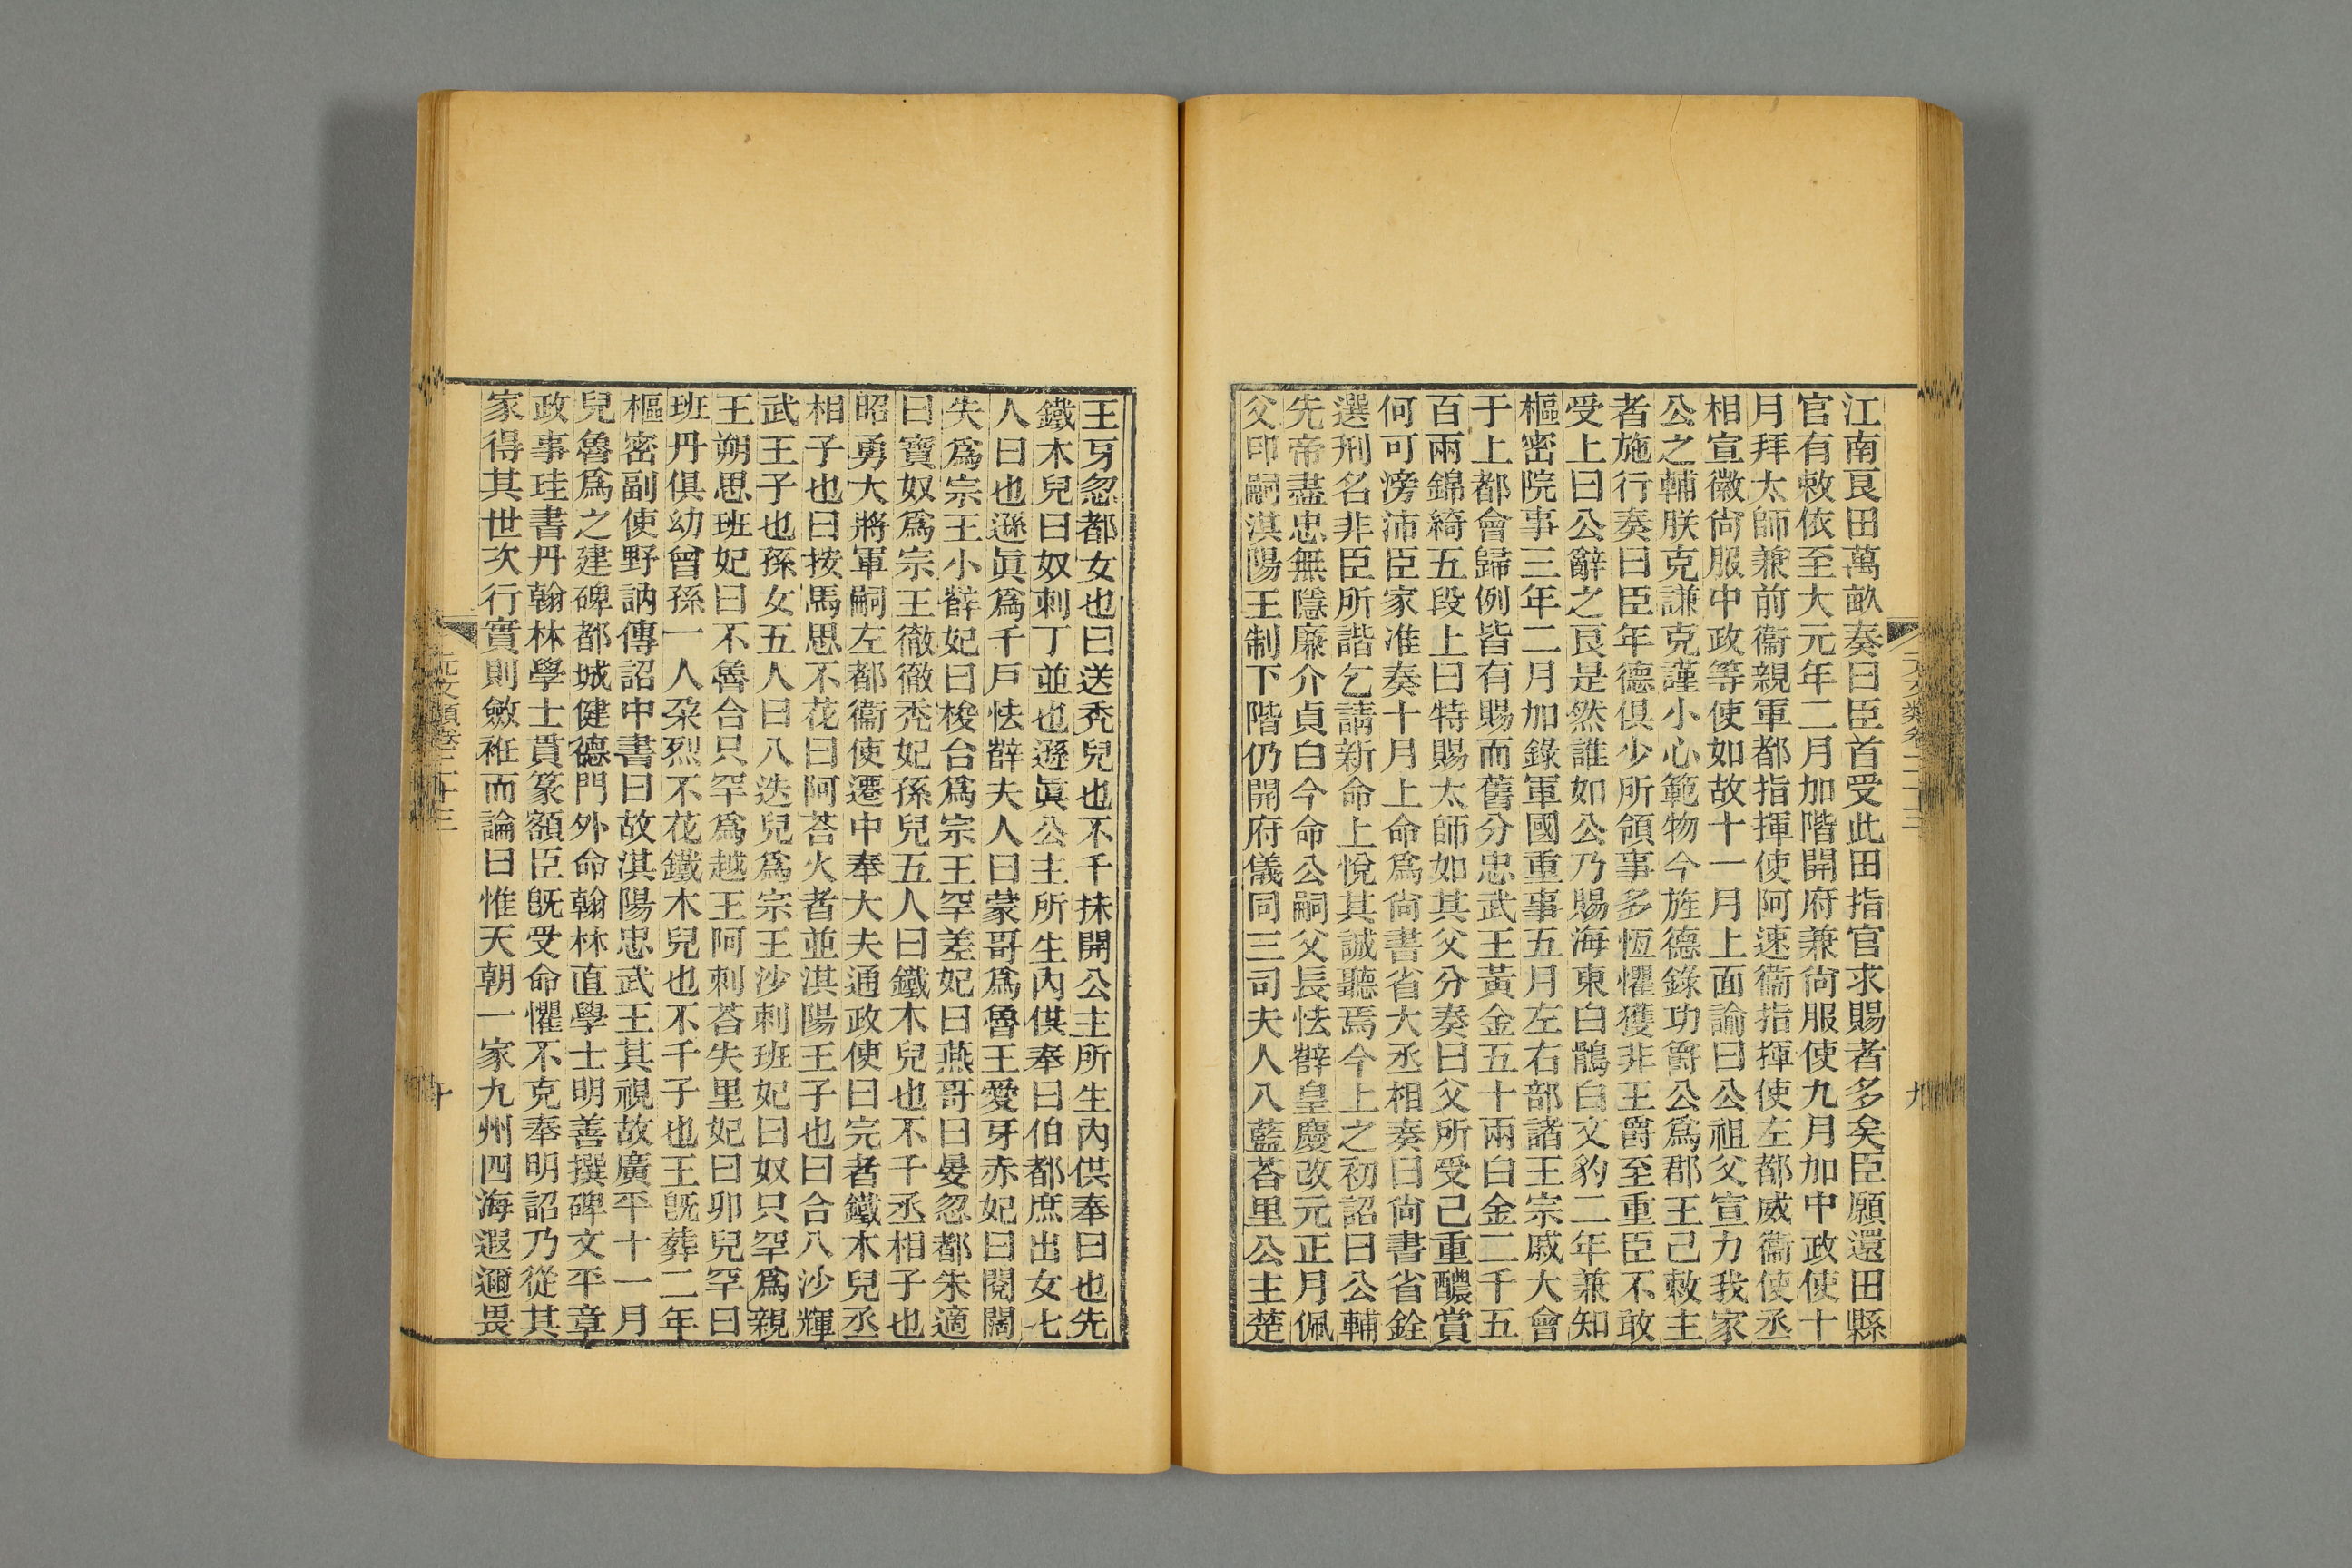 江南良田萬畝奏曰臣首受此田指官求賜者多矣臣願還田縣
官有敕依至大元年二月加階開府兼尙服使九月加中政使十
月拜太師兼前衞親軍都指揮使阿速衞指揮使左都威衞使丞
相宣徽尙服中政等使如故十一月上面諭曰公祖父宣力我家
公之輔朕克謙克謹小心範物今旌德錄功爵公爲郡王已敕主
者施行奏曰臣年德俱少所領事多恆懼獲非王爵至重臣不敢
受上曰公辭之良是然誰如公乃賜海東白鶻白文豹二年兼知
樞密院事三年二月加錄軍國重事五月左右部諸王宗戚大會
于上都會歸例皆有賜而舊分忠武王黃金五十兩白金二千五
百兩錦綺五段上曰特賜太師如其父分奏曰父所受已重醲賞
何可滂沛臣家准奏十月上命爲尙書省大丞相奏曰尙書省銓
選刑名非臣所諧乞請新命上悅其誠聽焉今上之初詔曰公輔
先帝盡忠無隱廉介貞白今命公嗣父長怯薛皇慶改元正月佩
父印嗣淇陽王制下階仍開府儀同三司夫人八藍荅里公主楚
王牙忽都女也曰送禿兒也不千抹開公主所生內供奉曰也先
鐵木兒曰奴剌丁並也遜眞公主所生內供奉曰伯都庶出女七
人曰也遜眞爲千戸怯薛夫人曰蒙哥爲魯王愛牙赤妃曰閱闊
失爲宗王小薛妃曰梭台爲宗王罕差妃曰燕哥曰晏忽都朱適
曰寶奴爲宗王徹徹禿妃孫兒五人曰鐵木兒也不千丞相子也
昭勇大將軍嗣左都衞使遷中奉大夫通政使曰完者鐵木兒丞
相子也曰按馬思不花曰阿荅火者並淇陽王子也曰合八沙輝
武王子也孫女五人曰八迭兒爲宗王沙剌班妃曰奴只罕爲親
王朔思班妃曰不魯合只罕爲越王阿剌荅失里妃曰卯兒罕曰
班丹俱幼曾孫一人朶烈不花鐵木兒也不千子也王旣葬二年
樞密副使野訥傳詔中書曰故淇陽忠武王其視故廣平十一月
兒魯爲之建碑都城健德門外命翰林直學士明善撰碑文平章
政事珪書丹翰林學士貫篆額臣旣受命懼不克奉明詔乃從其
家得其世次行實則斂袵而論曰惟天朝一家九州四海遐邇畏
元文類卷二十三
九
元文類卷二十三
十